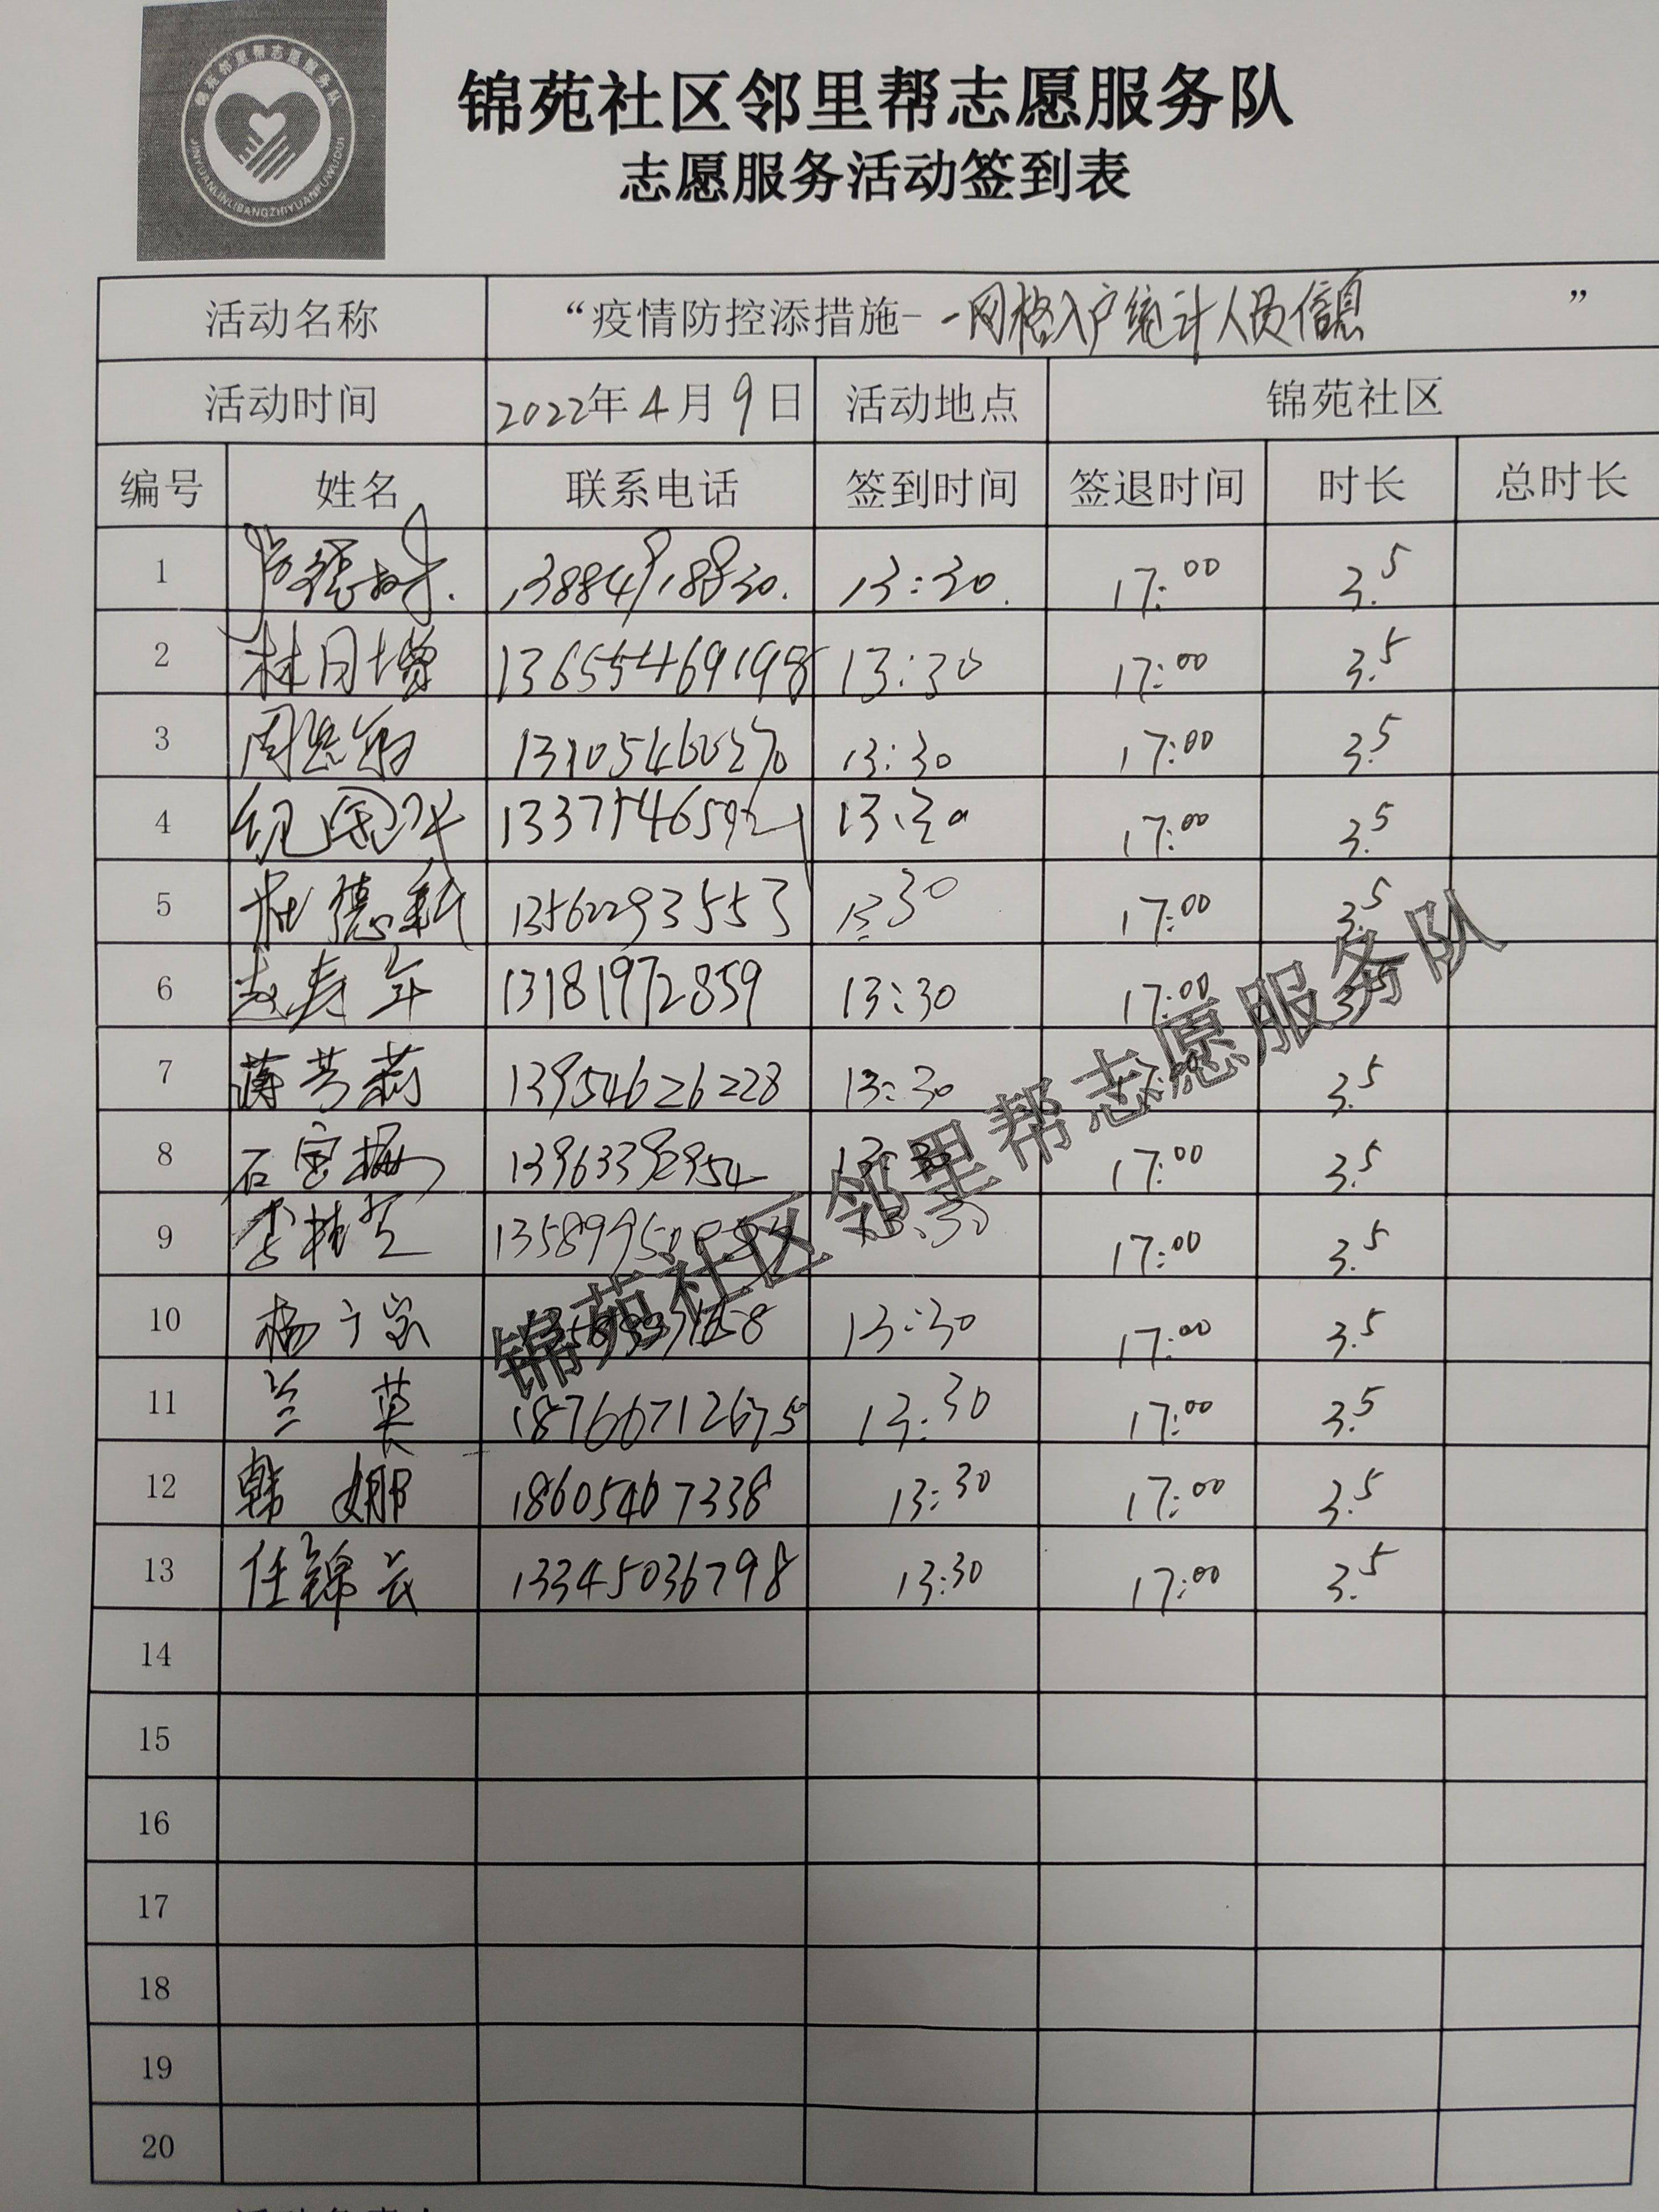 锦苑邻里帮志愿服务队
JINYUANLINLIBANGZHIYUANFUWUDUI
锦苑社区邻里帮志愿服务队
志愿服务活动签到表
活动名称 “疫情防控添措施--网格入户统计人员信息 ”
活动时间 2022年4月9日 活动地点 锦苑社区
编号 姓名 联系电话 签到时间 签退时间 时长 总时长
1 13:30. 17:00 3.5
2 林月增 13:30 17:00 3.5
3 13105460270 13:30 17:00 3.5
4 13:30 17:00 3.5
5 杜德新 13562293553 13:30 17:00 3.5
6 13181972859 13:30 17:00 3.5
7 薄芳莉 13954626228 13:30 17:00 3.5
8 石宝梅 13963392954 13:30 17:00 3.5
9 李桂芝 13:30 17:00 3.5
10 杨广宗 13:30 17:00 3.5
11 兰英 13:30 17:00 3.5
12 韩娜 18605467338 13:30 17:00 3.5
13 任锦云 13345036798 13:30 17:00 3.5
14
15
16
17
18
19
20
锦苑社区邻里帮志愿服务队